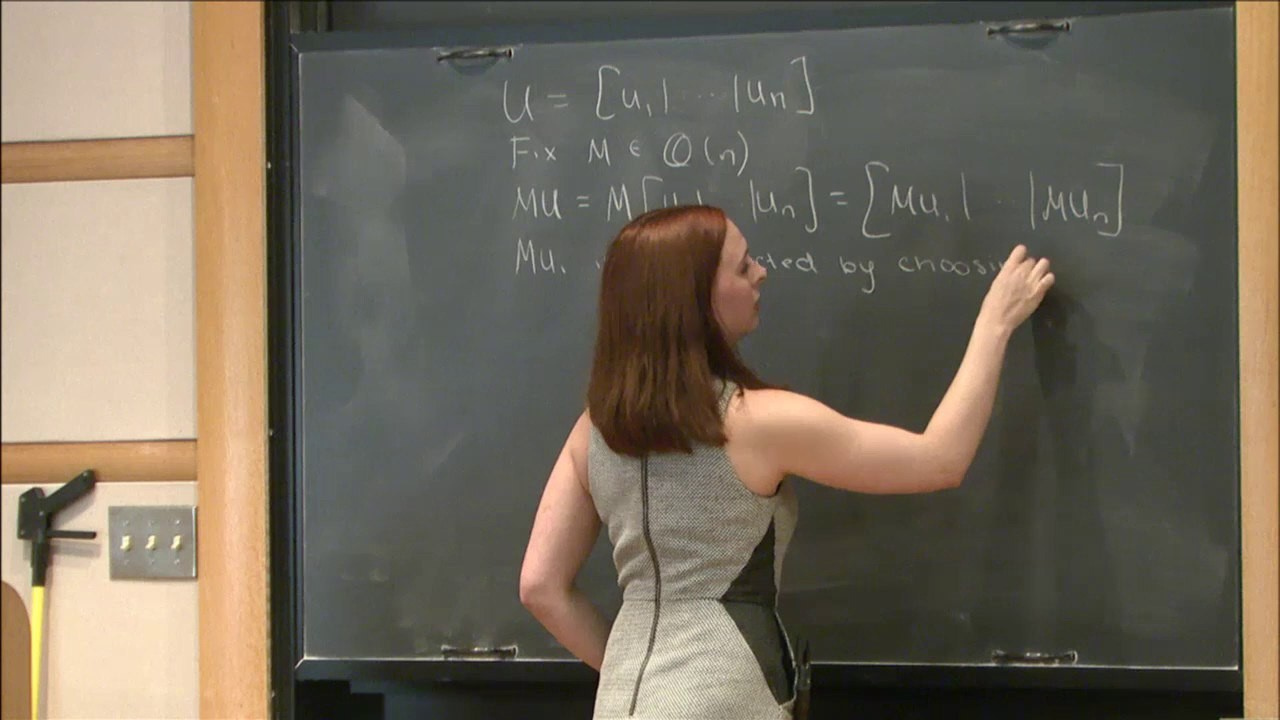 U = [u₁| ... |uₙ]
Fix M ∈ O(n)
MU = M[u₁| |uₙ] = [Mu₁| ... |Muₙ]
Mu₁ cted by choosin